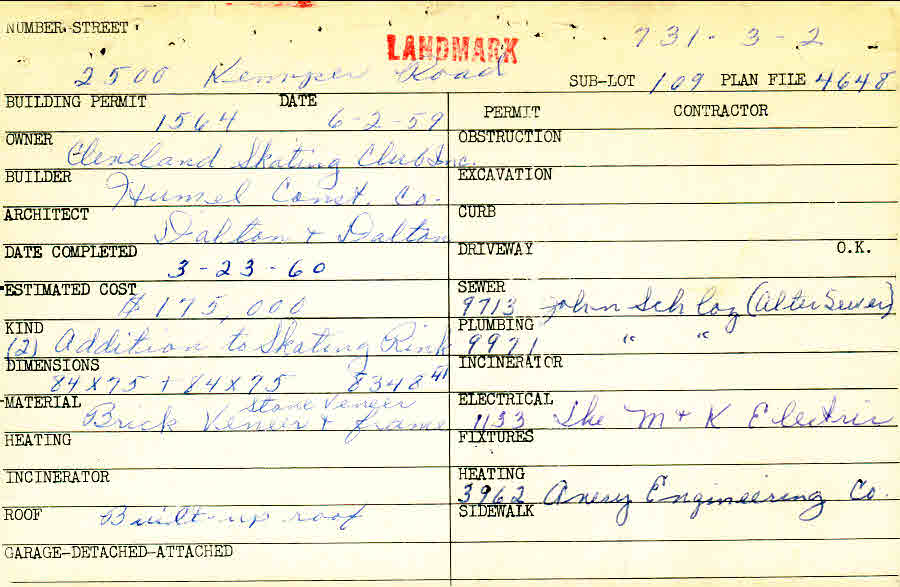 NUMBER STREET
LANDMARK
731-3-2
2500 Kemper Road
SUB-LOT 109 PLAN FILE 4648
BUILDING PERMIT DATE
1564 6-2-59
OWNER
Cleveland Skating Club Inc.
BUILDER
Humel Const. Co.
ARCHITECT
Dalton + Dalton
DATE COMPLETED
3-23-60
ESTIMATED COST
$ 175,000
KIND
(2) Addition to Skating Rink
DIMENSIONS
84 x 75 + 84 x 75 8348
MATERIAL
Stone Veneer
Brick Veneer + frame
HEATING
INCINERATOR
ROOF Built-up roof
GARAGE-DETACHED-ATTACHED
PERMIT CONTRACTOR
OBSTRUCTION
EXCAVATION
CURB
DRIVEWAY O.K.
SEWER
9713 John Schloz (Alter Sewer)
PLUMBING
9971 " "
INCINERATOR
ELECTRICAL
1133 The M + K Electric
FIXTURES
HEATING
3962 Avery Engineering Co.
SIDEWALK